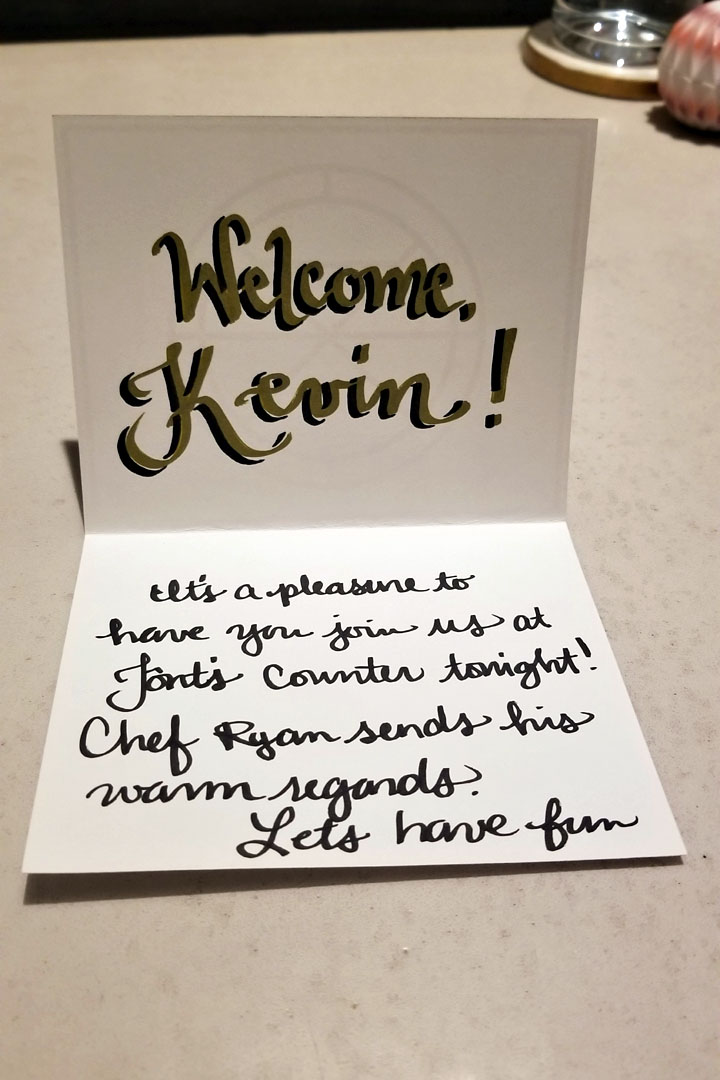 Welcome,
Kevin!
It's a pleasure to
have you join us at
Font's Counter tonight!
Chef Ryan sends his
warm regards.
Let's have fun